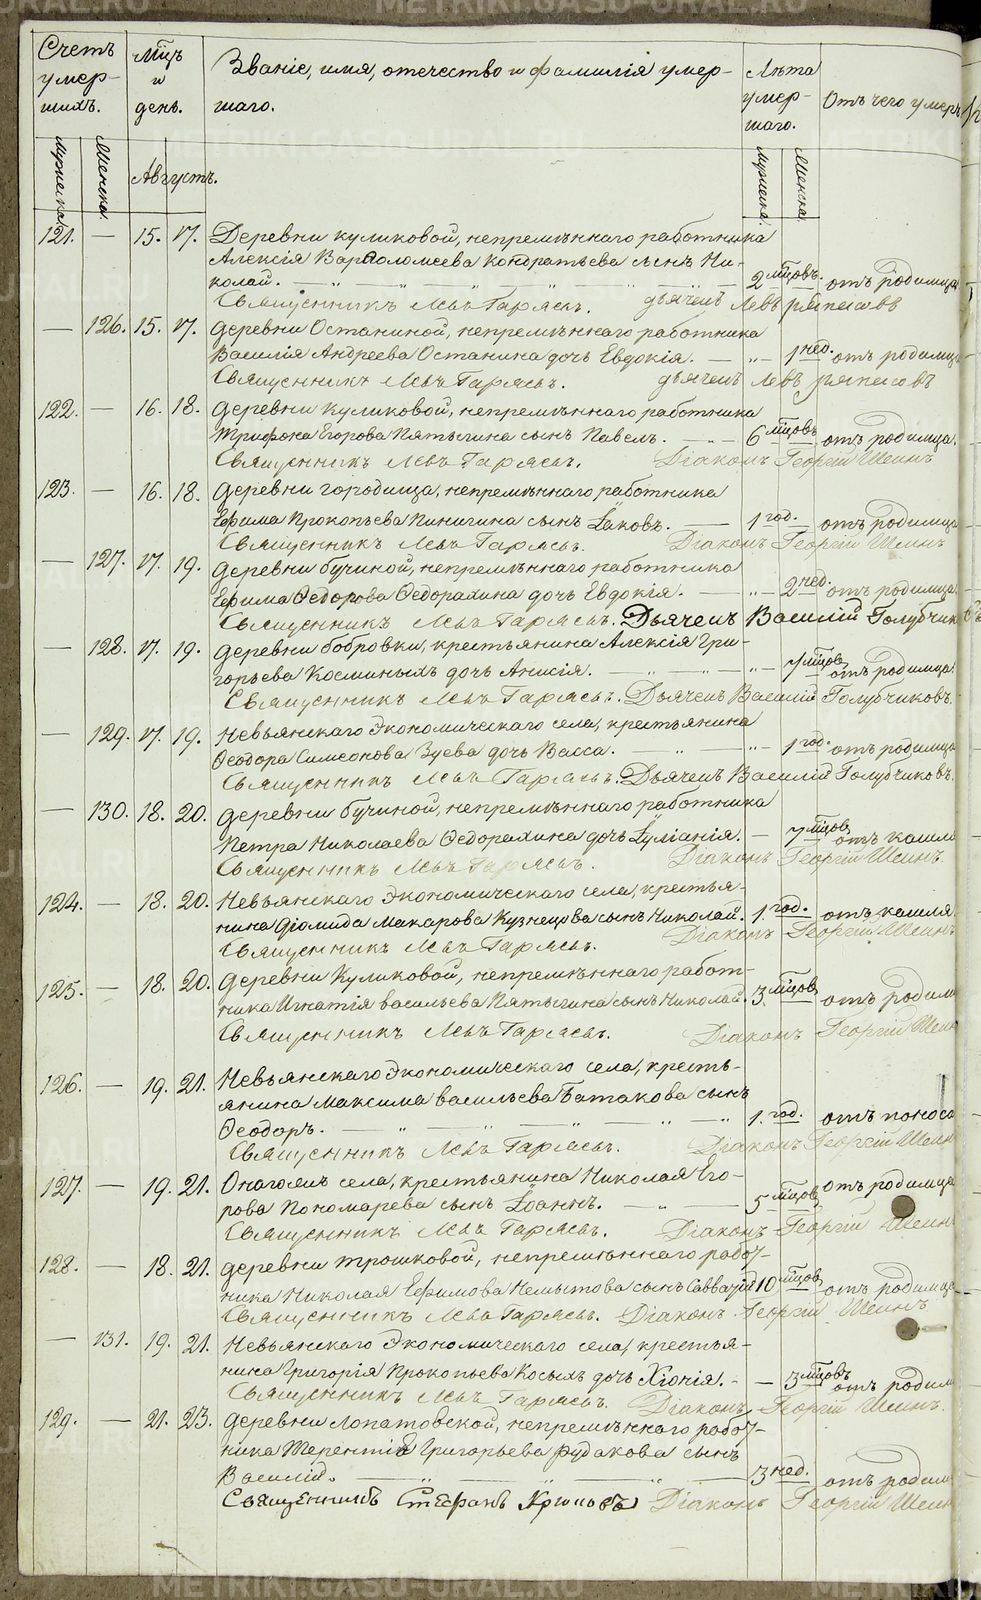 Счетъ умер-
шихъ.
Мцъ и день.
Званіе, имя, отечество и фамилія умер-
шаго.
Лѣта умер-
шаго.
Отъ чего умеръ
Мужеска.
Женска.
Августъ.
Мужеска.
Женска.
121. — 15. 17. Деревни Куликовой, непремѣннаго работника
Алексія Варѳоломеева Кондратьева сынъ Ни-
колай. 2 мцовъ. отъ родимца
Священникъ Левъ Гарясь. дьячекъ Левъ Ряпасовъ
— 126. 15. 17. Деревни Останиной, непремѣннаго работника
Василія Андреева Останина дочь Евдокія. — 1 нед. отъ родимца
Священникъ Левъ Гарясь. дьячекъ Левъ Ряпасовъ
122. — 16. 18. Деревни Куликовой, непремѣннаго работника
Трифона Егорова Пятыгина сынъ Павелъ. 6 мцовъ. отъ родимца.
Священникъ Левъ Гарясь. Діаконъ Георгій Шеинъ
123. — 16. 18. Деревни городища, непремѣннаго работника
Ефима Прокопьева Пинигина сынъ Іаковъ. — 1 год. отъ родимца
Священникъ Левъ Гарясь. Діаконъ Георгій Шеинъ
— 127. 17. 19. Деревни бучиной, непремѣннаго работника
Ефима Ѳедорова Ѳедорахина дочь Евдокія. — 2 нед. отъ родимца.
Священникъ Левъ Гарясь. Дьячекъ Василій Голубчик
— 128. 17. 19. Деревни бобровки, крестьянина Алексія Гри-
горьева Косминыхъ дочь Анисія. 7 мцов. отъ родимца.
Священникъ Левъ Гарясь. Дьячекъ Василій Голубчиковъ.
— 129. 17. 19. Невьянскаго Экономическаго села, крестьянина
Ѳеодора Симеонова Зуева дочь Васса. 1 год. отъ родимца
Священникъ Левъ Гарясь. Дьячекъ Василій Голубчиковъ.
— 130. 18. 20. Деревни бучиной, непремѣннаго работника
Петра Николаева Ѳедорахина дочь Іуліанія. — 7 мцов. отъ кашля
Священникъ Левъ Гарясь. Діаконъ Георгій Шеинъ.
124. — 18. 20. Невьянскаго Экономическаго села, крестья-
нина Діомида Макарова Кузнецова сынъ Николай. 1. год. отъ кашля.
Священникъ Левъ Гарясь. Діаконъ Георгій Шеинъ
125. — 18. 20. Деревни Куликовой, непремѣннаго работ-
ника Игнатія васильева Пятыгина сынъ Николай. 3. мцов. отъ родим
Священникъ Левъ Гарясь. Діаконъ Георгій Шеин
126. — 19. 21. Невьянскаго Экономическаго села, кресть-
янина Максима васильева Батакова сынъ
Ѳеодоръ. 1. год. отъ поноса
Священникъ Левъ Гарясь. Діаконъ Георгій Шеин
127. — 19. 21. Онагожъ села, крестьянина Николая Его-
рова Пономарева сынъ Іоаннъ. 5 мцов. отъ родимца
Священникъ Левъ Гарясь. Діаконъ Георгій Шеин
128. — 18. 21. деревни Трошковой, непремѣннаго работ-
ника Николая Ефимова Немытова сынъ Савватій 10 мцов. отъ родимца
Священникъ Левъ Гарясь. Діаконъ Георгій Шеинъ
— 131. 19. 21. Невьянскаго Экономическаго села, крестья-
нина Григорія Прокопьева Косыхъ дочь Хіонія. — 3 мцовъ отъ родим
Священникъ Левъ Гарясь. Діаконъ Георгій Шеинъ.
129. — 21. 23. Деревни Лопатовской, непремѣннаго работ-
ника Терентія Григорьева Рудакова сынъ
Василій. 3 нед. отъ родим
Священникъ Стефанъ Крюковъ Діаконъ Георгій Шеин
METRIKI.GASU-URAL.RU